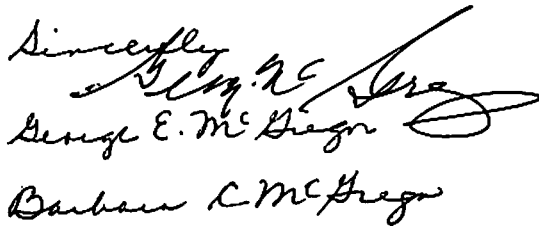 Sincerely
Geo. Mc Gre
George E. McGregor
Barbara C McGregor